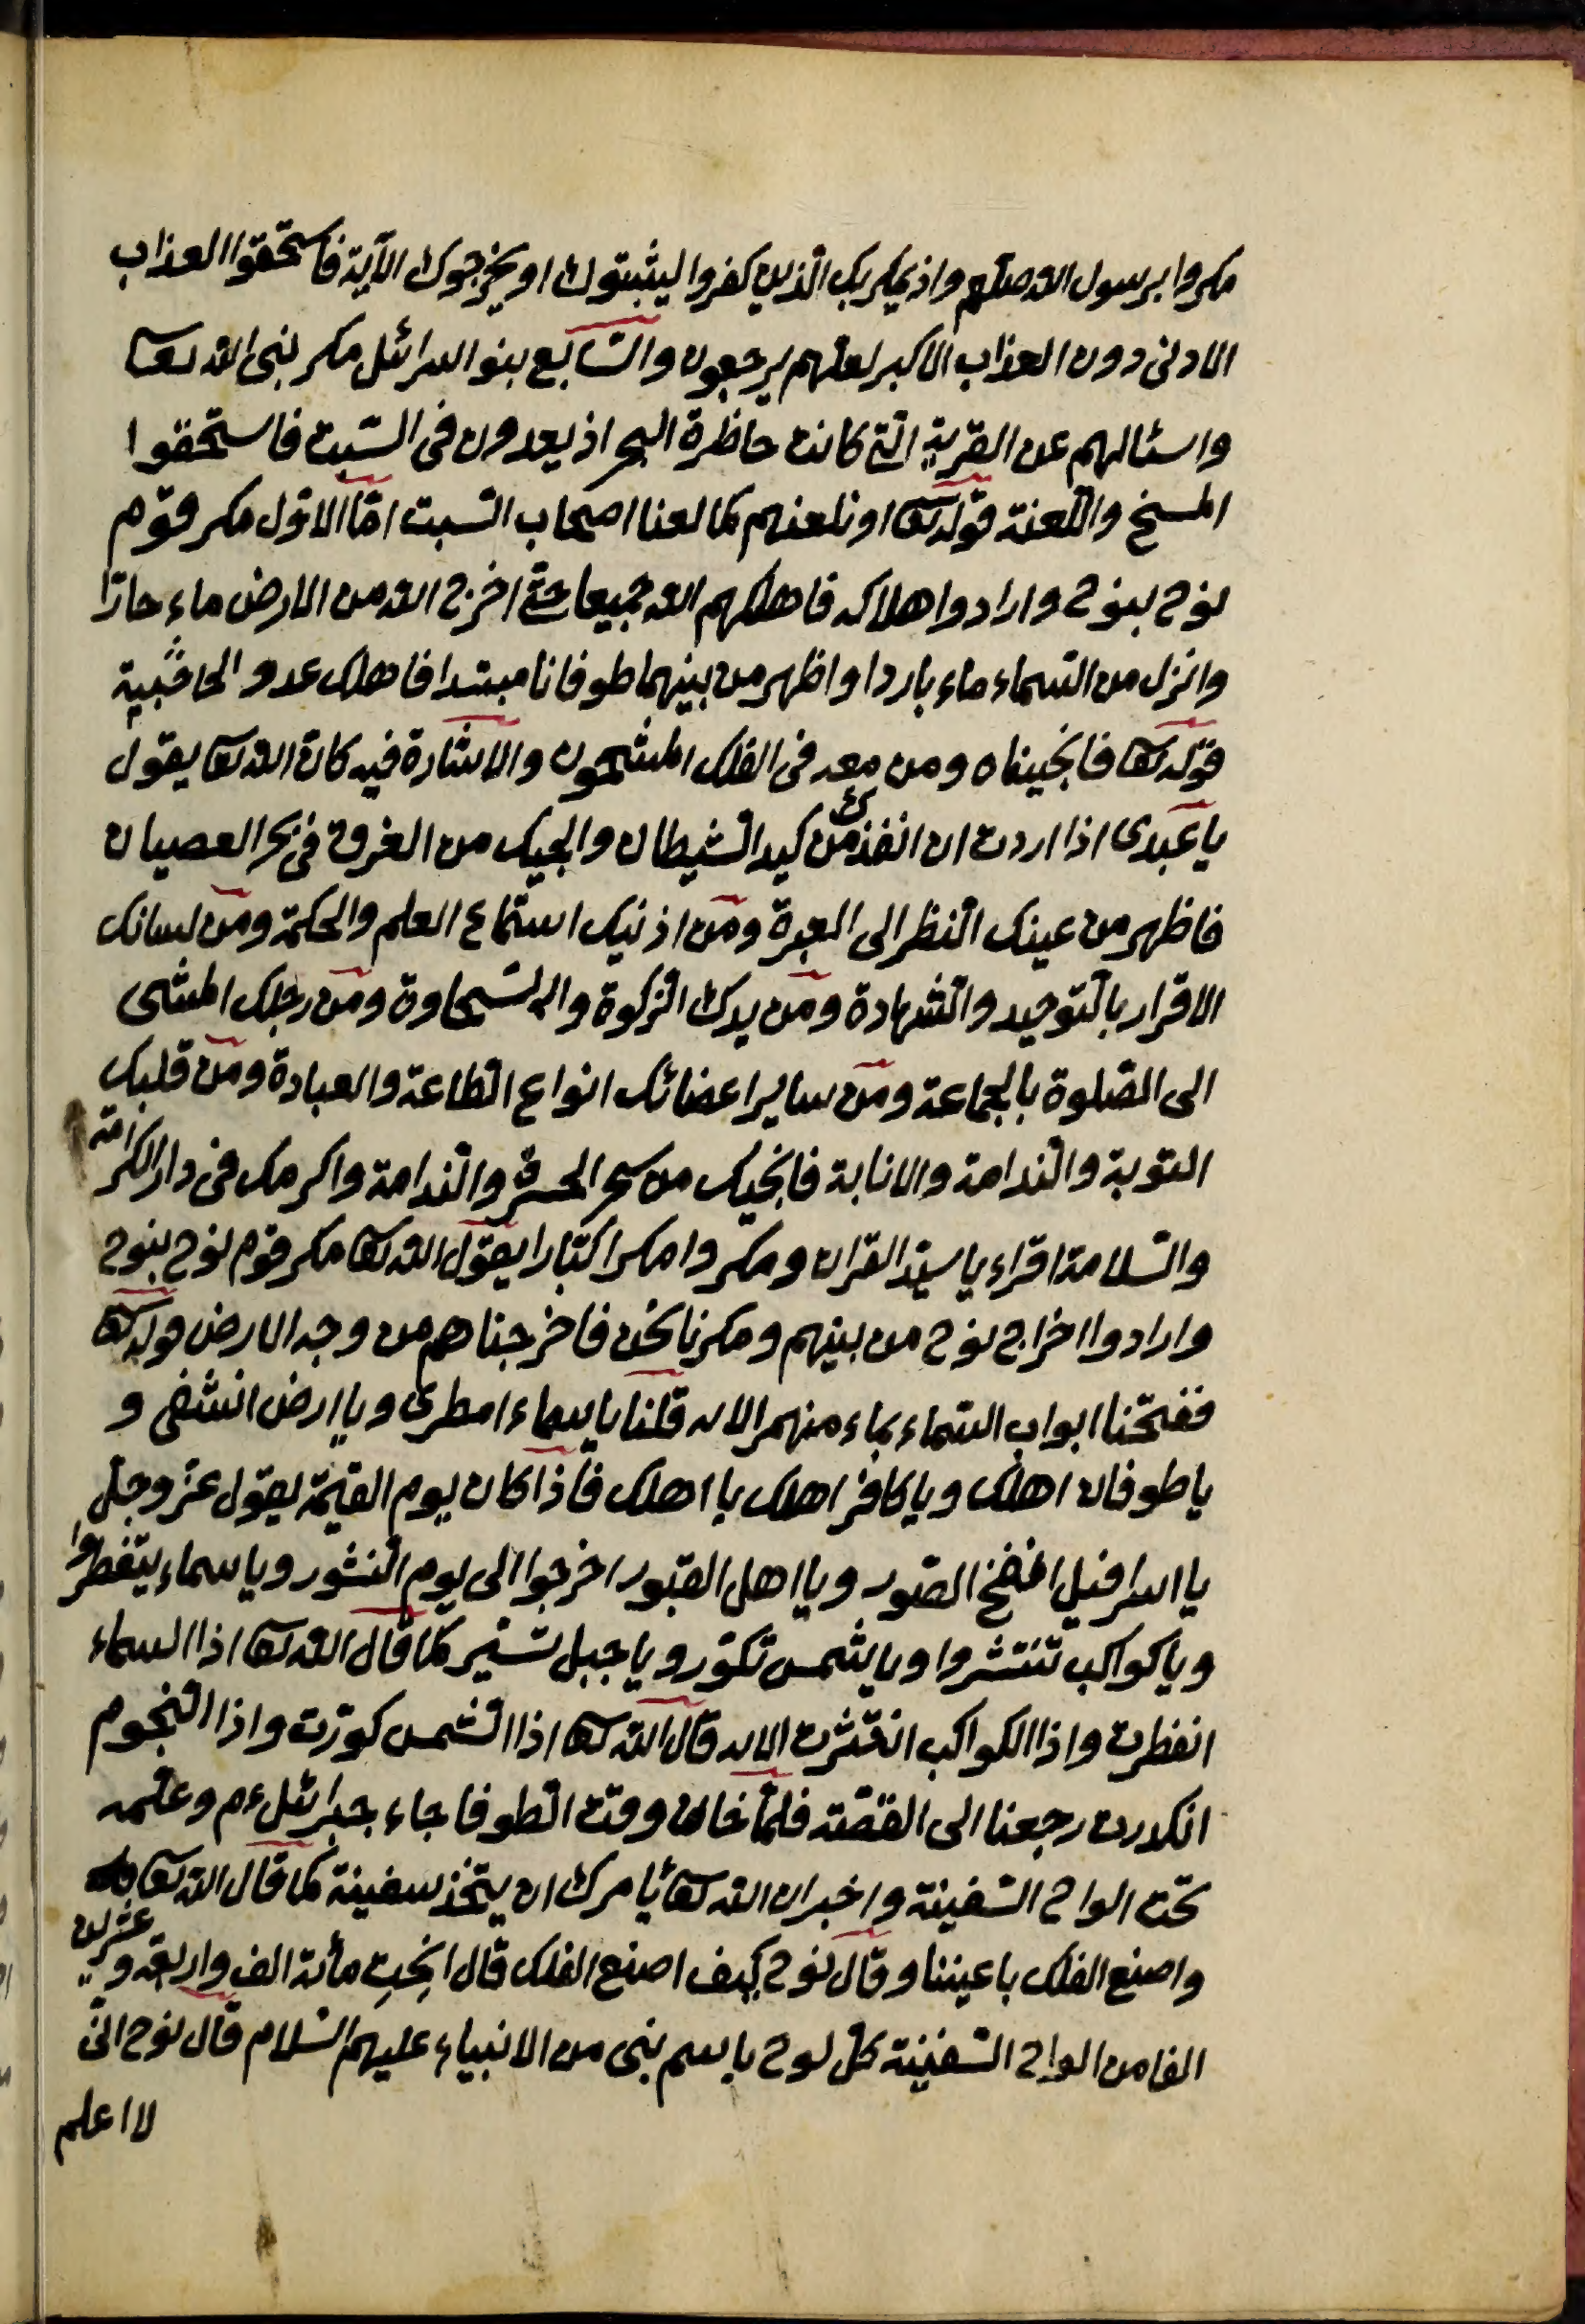 مكروا برسول الله صلعم واذ يمكر بك الذين كفروا ليثبتوك او يخرجوك الآية فاستحقوا العذاب
الادنى دون العذاب الاكبر لعلهم يرجعون والسّابع بنو اسرائل مكر بنبى الله تعا
واسئالهم عن القرية التى كانت حاظرة البحر اذ يعدون فى السّبت فاستحقوا
المسخ واللّعنة قوله تعا او نلعنهم كما لعنا اصحاب السّبت امّا الاوّل مكر قوم
نوح بنوح وارادوا هلاكه فاهلكهم الله جميعا حتى اخرج الله من الارض ماء حارّا
وانزل من السّماء ماء باردا واظهر من بينهما طوفانا فاهلك عدو
قوله تعا فانجيناه ومن معه فى الفلك المشحون والاشارة فيه كانّ الله تعا يقول
يا عبدى اذا اردت ان انقذك من كيد الشّيطان وانجيك من الغرق فى بحر العصيان
فاظهر من عينك النّظر الى العبرة ومن اذنيك استماع العلم والحكمة ومن لسانك
الاقرار بالتّوحيد والشّهادة ومن يدك الزّكوة والسّخاوة ومن رجلك المشى
الى الصّلوة بالجماعة ومن ساير اعضائك انواع الطّاعة والعبادة ومن قلبك
التوبة والنّدامة والانابة فانجيك من بحر الحسرة والنّدامة واكرمك فى دار الكرامة
والسّلامة اقراء يا سيّد القران ومكروا مكرا كبّارا يقول الله تعا مكر قوم نوح بنوح
وارادوا اخراج نوح من بينهم ومكرنا نحن فاخرجناهم من وجه الارض قوله تعا
ففتحنا ابواب السّماء بماء منهمر الايه قلنا يا سماء امطرى ويا ارض انشفى و
يا طوفان اهلك ويا كافر اهلك يا اهلك فاذا كان يوم القيمة يقول عزّ وجلّ
يا اسرافيل انفخ الصّور ويا اهل القبور اخرجوا الى يوم النّشور ويا سماء يتفطروا
ويا كواكب تنتشروا ويا شمس تكوّر ويا جبل تسيّر كما قال الله تعا اذا السماء
انفطرت واذا الكواكب انتثرت الايه قال الله تعا اذا الشّمس كوّرت واذا النّجوم
انكدرت رجعنا الى القصّة فلمّا خان وقت الطّوفا جاء جبرائل عم وعلّمه
نحت الواح السّفينة واخبر ان الله تعا يأمرك ان يتّخذ سفينة كما قال الله تعا
واصنع الفلك باعيننا وقال نوح كيف اصنع الفلك قال انحت مأئة الف واربعة وعشرين
الفا من الواح السّفينة كلّ لوح باسم نبى من الانبياء عليهم السّلام قال نوح انّى
لا اعلم